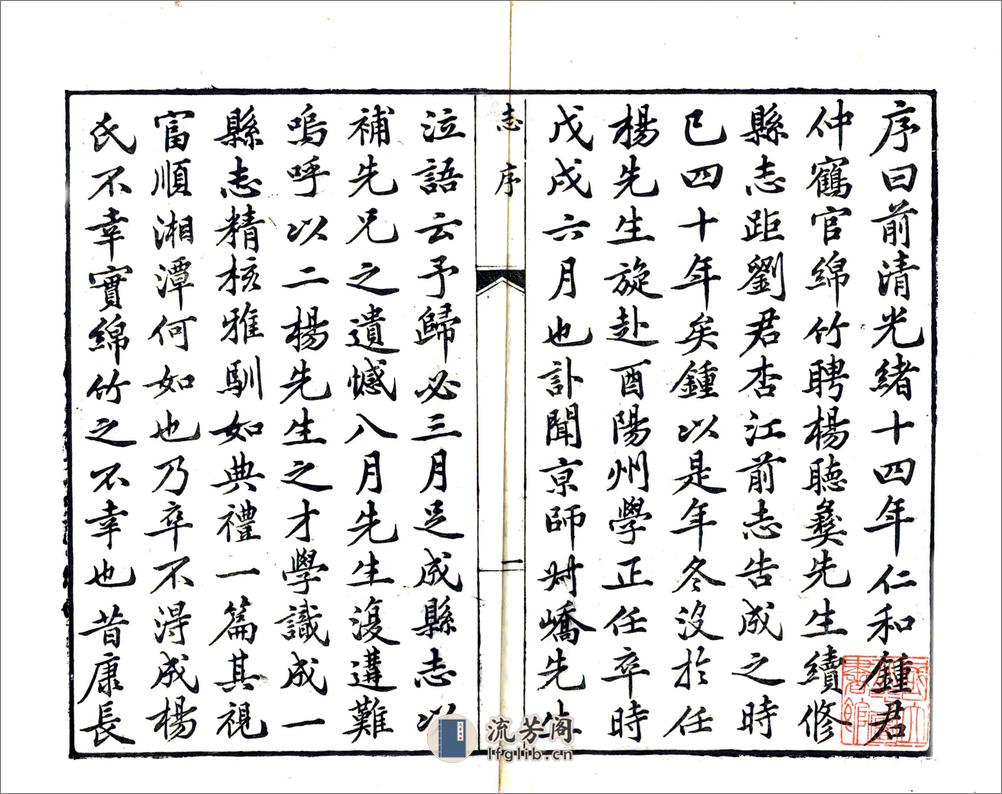 序曰前清光緒十四年仁和鍾君
仲鶴官綿竹聘楊聽彝先生續修
縣志距劉君杏江前志告成之時
已四十年矣鍾以是年冬沒於任
楊先生旋赴酉陽州學正任卒時
戊戌六月也訃聞京師叔嶠先
志序
一
泣語云予歸必三月足成縣志以
補先兄之遺憾八月先生復遘難
嗚呼以二楊先生之才學識成一
縣志精核雅馴如典禮一篇其視
富順湘潭何如也乃卒不得成楊
氏不幸實綿竹之不幸也昔康長
流芳閣
lfglib.cn